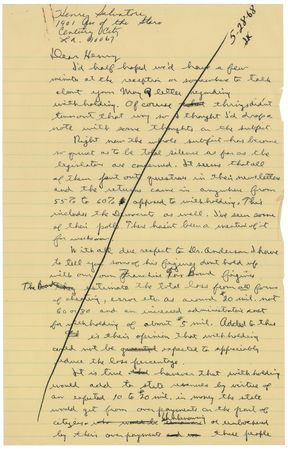 Henry Salvatori
1901 Ave of the Stars
Century City
L.A. 90067
5-28-68
Dear Henry
I'd half hoped we'd have a few
minutes at the reception or somewhere to talk
about your May 9 letter regarding
withholding. Of course things didn't
turn out that way so I thought I'd drop a
note with some thoughts on the subject
Right now the whole subject has become
so quiet as to be total silence as far as the
legislators are concerned. It seems that all
of them sent out questions in their newsletters
and the returns came in anywhere from
55% to 60% opposed to withholding. This
includes the Democrats as well. I've seen some
of their polls. There hasn't been a mention of it
for weeks now.
With all due respect to Dr. Anderson I have
to tell you some of his figures don't hold up
with our own Franchise Tax Board figures
The Board estimate the total loss from all forms
of cheating, error etc as around 20 mil. not
60 or 80 and an increased administrative cost
for withholding of about 5 mil. Added to this
is their opinion that withholding
could not be expected to appreciably
reduce the loss percentage
It is true however that withholding
would add to state revenues by virtue of
an expected 10 to 20 mil. in money the state
would get from over payments on the part of
citizens or unclaimed
by their over payments these people